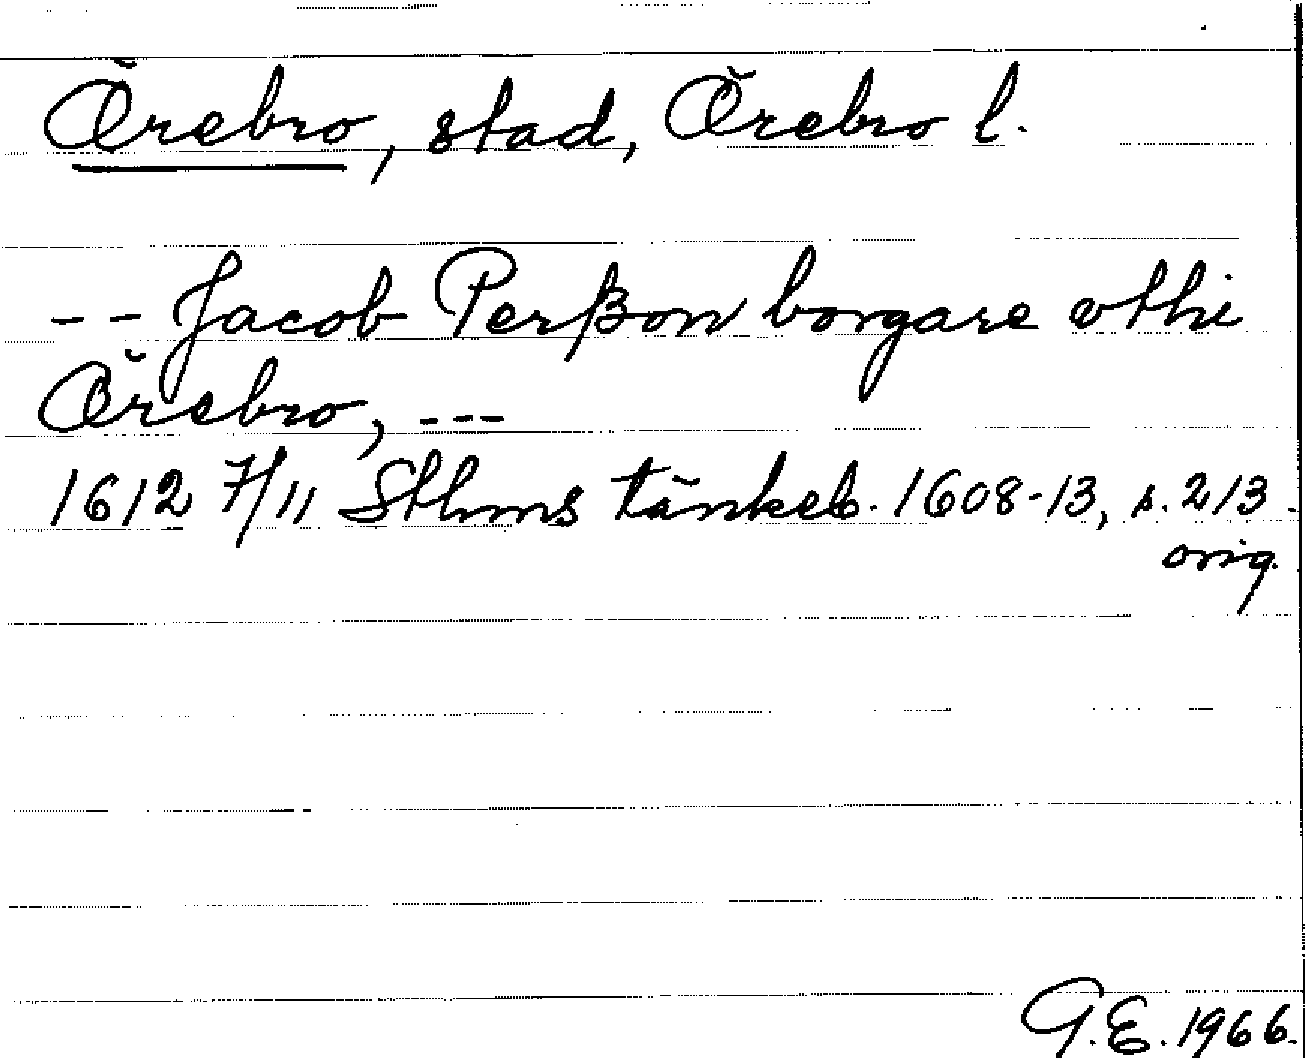 Örebro, stad, Örebro l.
-- Jacob Perßon borgare vthi
Örebro, ---
1612 7/11 Sthms tänkeb. 1608-13, s. 213.
orig.
G.E. 1966.